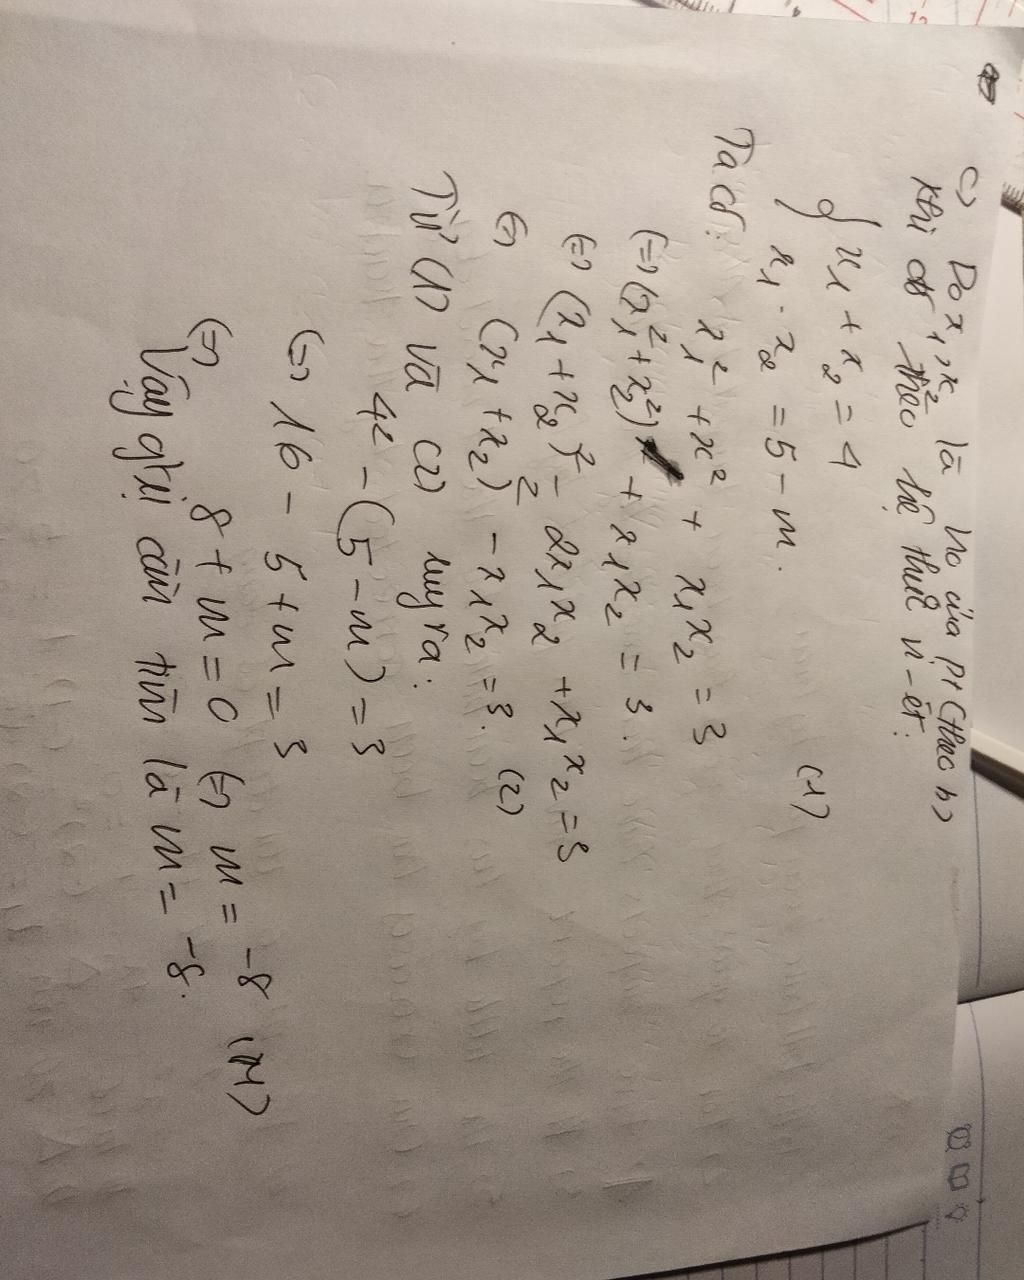 c) Do x₁, x₂ là no của pt (theo b)
Khi đó theo hệ thức vi-ét:
{ x₁ + x₂ = 4
x₁ . x₂ = 5 - m. (1)
Ta có: x₁² + x² + x₁x₂ = 3
(=) (x₁² + x₂²) + x₁x₂ = 3.
(=) (x₁ + x₂)² - 2x₁x₂ + x₁x₂ = 3
(=) (x₁ + x₂)² - x₁x₂ = 3. (2)
Từ (1) và (2) suy ra:
4² - (5 - m) = 3
(=) 16 - 5 + m = 3
(=) 8 + m = 0 (=) m = -8 (TM)
Vậy gtrị cần tìm là m = -8.